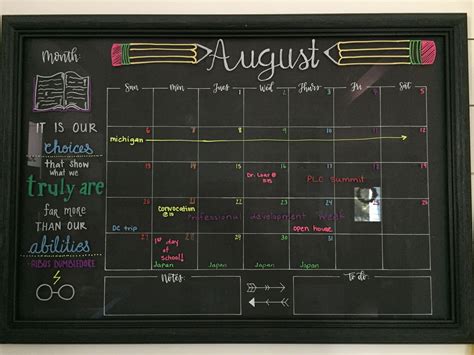 Month:
August
Sun Mon Tues Wed Thurs Fri Sat
1 2 3 4 5
IT IS OUR
choices
that show
what we
truly are
far more
than our
abilities
-Albus Dumbledore
6 7 8 9 10 11 12
michigan
13 14 15 16 17 18 19
PLC Summit
20 21 22 23 24 25 26
convocation
Professional Development Week
DC trip
open house
27 28 29 30 31
1st day
of
school!
Japan Japan Japan Japan
Notes:
to do: